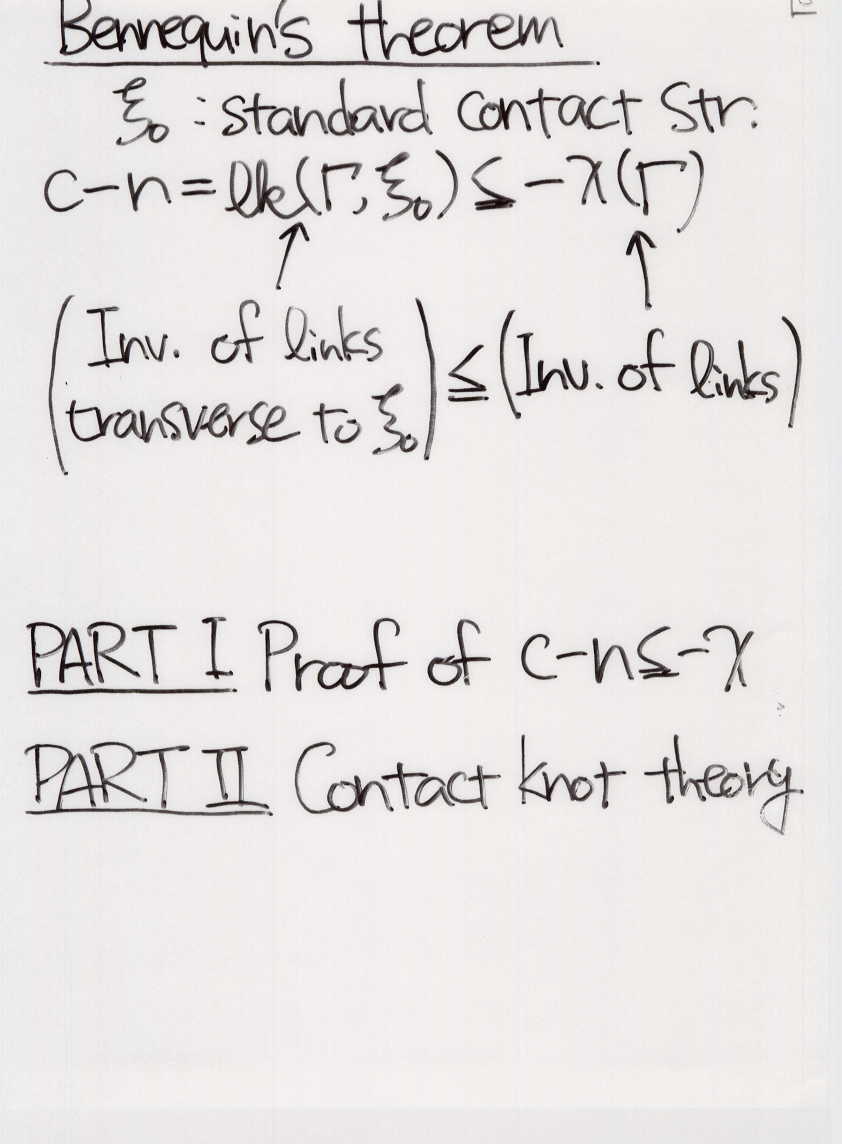 Bennequin's theorem
ξ₀ : standard contact str.
c-n = lk(Γ, ξ₀) ≦ -χ(Γ)
↑ ↑
(Inv. of links transverse to ξ₀) ≦ (Inv. of links)
PART I Proof of c-n≦-χ
PART II Contact knot theory